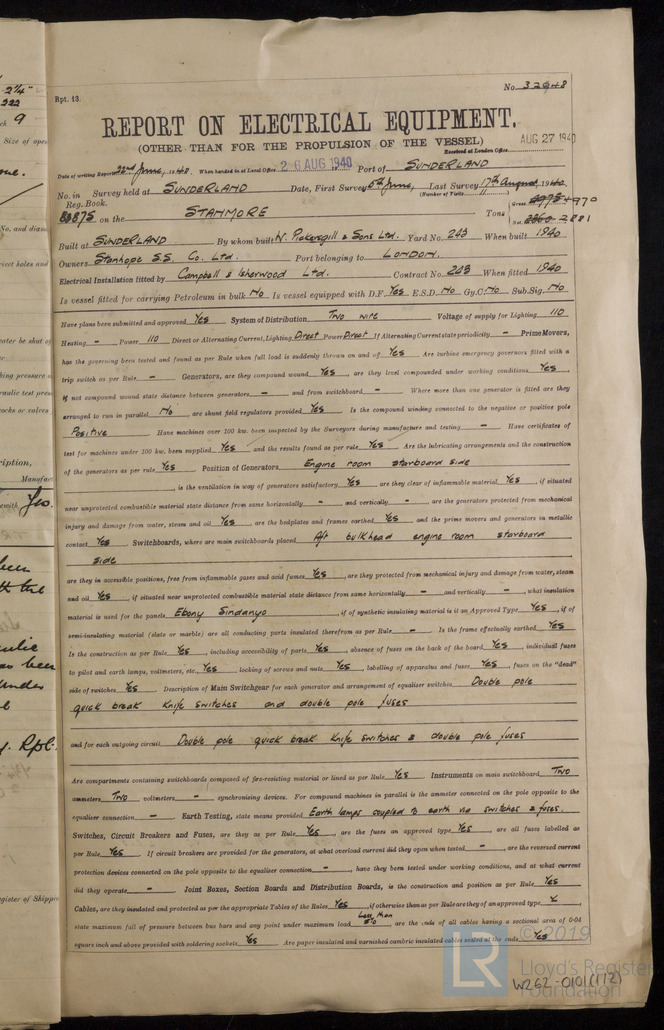 No. 32948
Rpt. 13.
REPORT ON ELECTRICAL EQUIPMENT.
(OTHER THAN FOR THE PROPULSION OF THE VESSEL)
AUG 27 1940
Received at London Office
Date of writing Report 22nd June, 1940 When handed in at Local Office 26 AUG 1940 Port of SUNDERLAND
No. in Survey held at SUNDERLAND Date, First Survey 5th June, Last Survey 17th August, 1940
Reg. Book. (Number of Visits 11)
88875 on the STANMORE Tons Gross 4970
Net 2881
Built at SUNDERLAND By whom built W. Pickersgill & Sons Ltd. Yard No. 243 When built 1940
Owners Stanhope S.S. Co. Ltd. Port belonging to LONDON.
Electrical Installation fitted by Campbell & Isherwood Ltd. Contract No. 243 When fitted 1940
Is vessel fitted for carrying Petroleum in bulk No Is vessel equipped with D.F. Yes E.S.D. No Gy.C. No Sub.Sig. No
Have plans been submitted and approved Yes System of Distribution Two wire Voltage of supply for Lighting 110
Heating - Power 110 Direct or Alternating Current, Lighting Direct Power Direct If Alternating Current state periodicity - Prime Movers,
has the governing been tested and found as per Rule when full load is suddenly thrown on and off Yes Are turbine emergency governors fitted with a
trip switch as per Rule - Generators, are they compound wound Yes, are they level compounded under working conditions Yes,
if not compound wound state distance between generators - and from switchboard - Where more than one generator is fitted are they
arranged to run in parallel No, are shunt field regulators provided Yes Is the compound winding connected to the negative or positive pole
Positive Have machines over 100 kw. been inspected by the Surveyors during manufacture and testing - Have certificates of
test for machines under 100 kw. been supplied Yes and the results found as per rule Yes Are the lubricating arrangements and the construction
of the generators as per rule Yes Position of Generators Engine room starboard side
, is the ventilation in way of generators satisfactory Yes are they clear of inflammable material Yes, if situated
near unprotected combustible material state distance from same horizontally - and vertically -, are the generators protected from mechanical
injury and damage from water, steam and oil Yes, are the bedplates and frames earthed Yes and the prime movers and generators in metallic
contact Yes Switchboards, where are main switchboards placed Aft bulkhead engine room starboard
side
are they in accessible positions, free from inflammable gases and acid fumes Yes, are they protected from mechanical injury and damage from water, steam
and oil Yes, if situated near unprotected combustible material state distance from same horizontally - and vertically -, what insulation
material is used for the panels Ebony Sindanyo, if of synthetic insulating material is it an Approved Type Yes, if of
semi-insulating material (slate or marble) are all conducting parts insulated therefrom as per Rule - Is the frame effectually earthed Yes
Is the construction as per Rule Yes, including accessibility of parts Yes, absence of fuses on the back of the board Yes, individual fuses
to pilot and earth lamps, voltmeters, etc. Yes locking of screws and nuts Yes, labelling of apparatus and fuses Yes, fuses on the "dead"
side of switches Yes Description of Main Switchgear for each generator and arrangement of equaliser switches Double pole
quick break knife switches and double pole fuses
and for each outgoing circuit Double pole quick break knife switches & double pole fuses
Are compartments containing switchboards composed of fire-resisting material or lined as per Rule Yes Instruments on main switchboard Two
ammeters Two voltmeters - synchronising devices. For compound machines in parallel is the ammeter connected on the pole opposite to the
equaliser connection - Earth Testing, state means provided Earth lamps coupled to earth via switches & fuses.
Switches, Circuit Breakers and Fuses, are they as per Rule Yes, are the fuses an approved type Yes, are all fuses labelled as
per Rule Yes If circuit breakers are provided for the generators, at what overload current did they open when tested -, are the reversed current
protection devices connected on the pole opposite to the equaliser connection -, have they been tested under working conditions, and at what current
did they operate - Joint Boxes, Section Boards and Distribution Boards, is the construction and position as per Rule Yes
Cables, are they insulated and protected as per the appropriate Tables of the Rules Yes, if otherwise than as per Rule are they of an approved type
state maximum fall of pressure between bus bars and any point under maximum load Less than are the ends of all cables having a sectional area of 0·04
square inch and above provided with soldering sockets Yes Are paper insulated and varnished cambric insulated cables sealed at the ends Yes
© 2019
LR
Lloyd's Register
Foundation
W262-0101(1/2)
2¼"
222
9
Size of
No. and
being pressure
cocks or valves
Manufac
Geo.
the
been
Rpt.